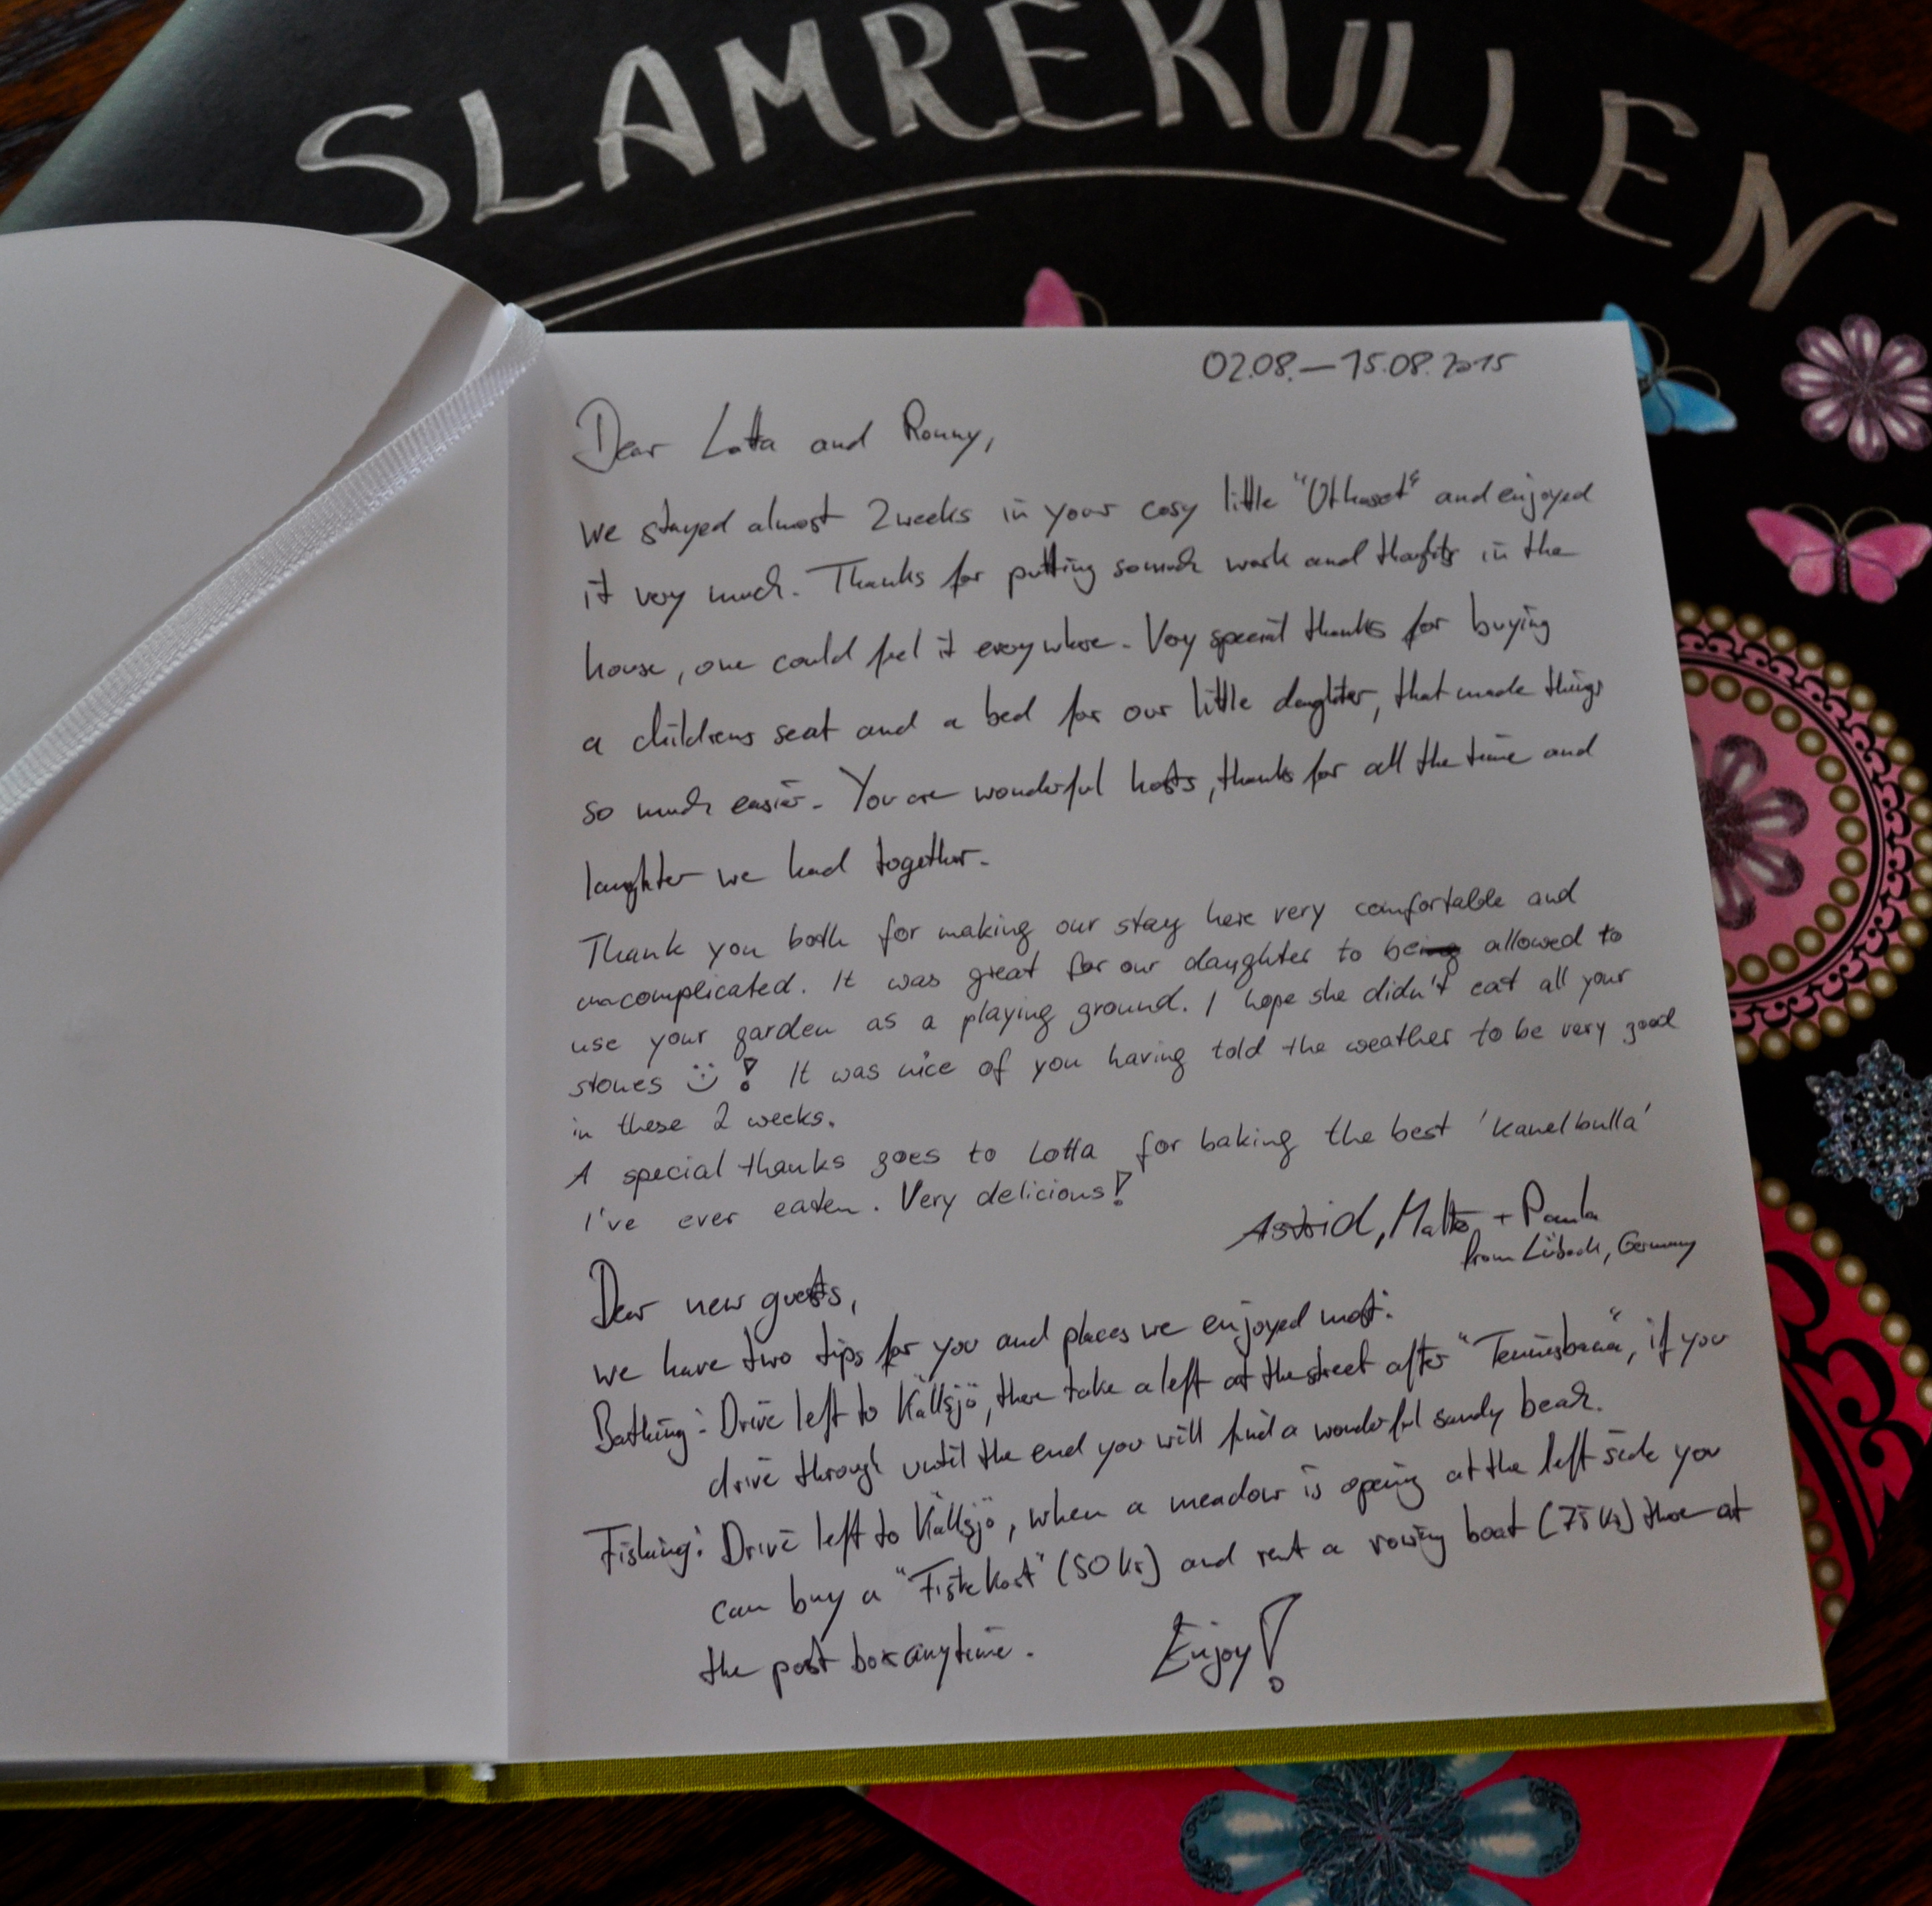 SLAMREKULLEN
02.08.—15.08.2015
Dear Lotta and Ronny,
we stayed almost 2 weeks in your cosy little "Uthuset" and enjoyed
it very much. Thanks for putting somuch work and thoughts in the
house, one could feel it everywhere. Very special thanks for buying
a childrens seat and a bed for our little daughter, that made things
so much easier. You are wonderful hosts, thanks for all the time and
laughter we had together.
Thank you both for making our stay here very comfortable and
uncomplicated. It was great for our daughter to be allowed to
use your garden as a playing ground. I hope she didn't eat all your
stones :) ! It was nice of you having told the weather to be very good
in these 2 weeks.
A special thanks goes to Lotta for baking the best 'kanelbulla'
I've ever eaten. Very delicious!
Astrid, Malte + Paula
from Lübeck, Germany
Dear new guests,
we have two tips for you and places we enjoyed most:
Bathing: Drive left to Källsjö, then take a left at the street after "Tennisbana", if you
drive through until the end you will find a wonderful sandy beach.
Fishing: Drive left to Källsjö, when a meadow is opening at the left side you
can buy a "Fiskekort" (50 kr) and rent a rowing boat (75 kr) there at
the post box anytime. Enjoy!